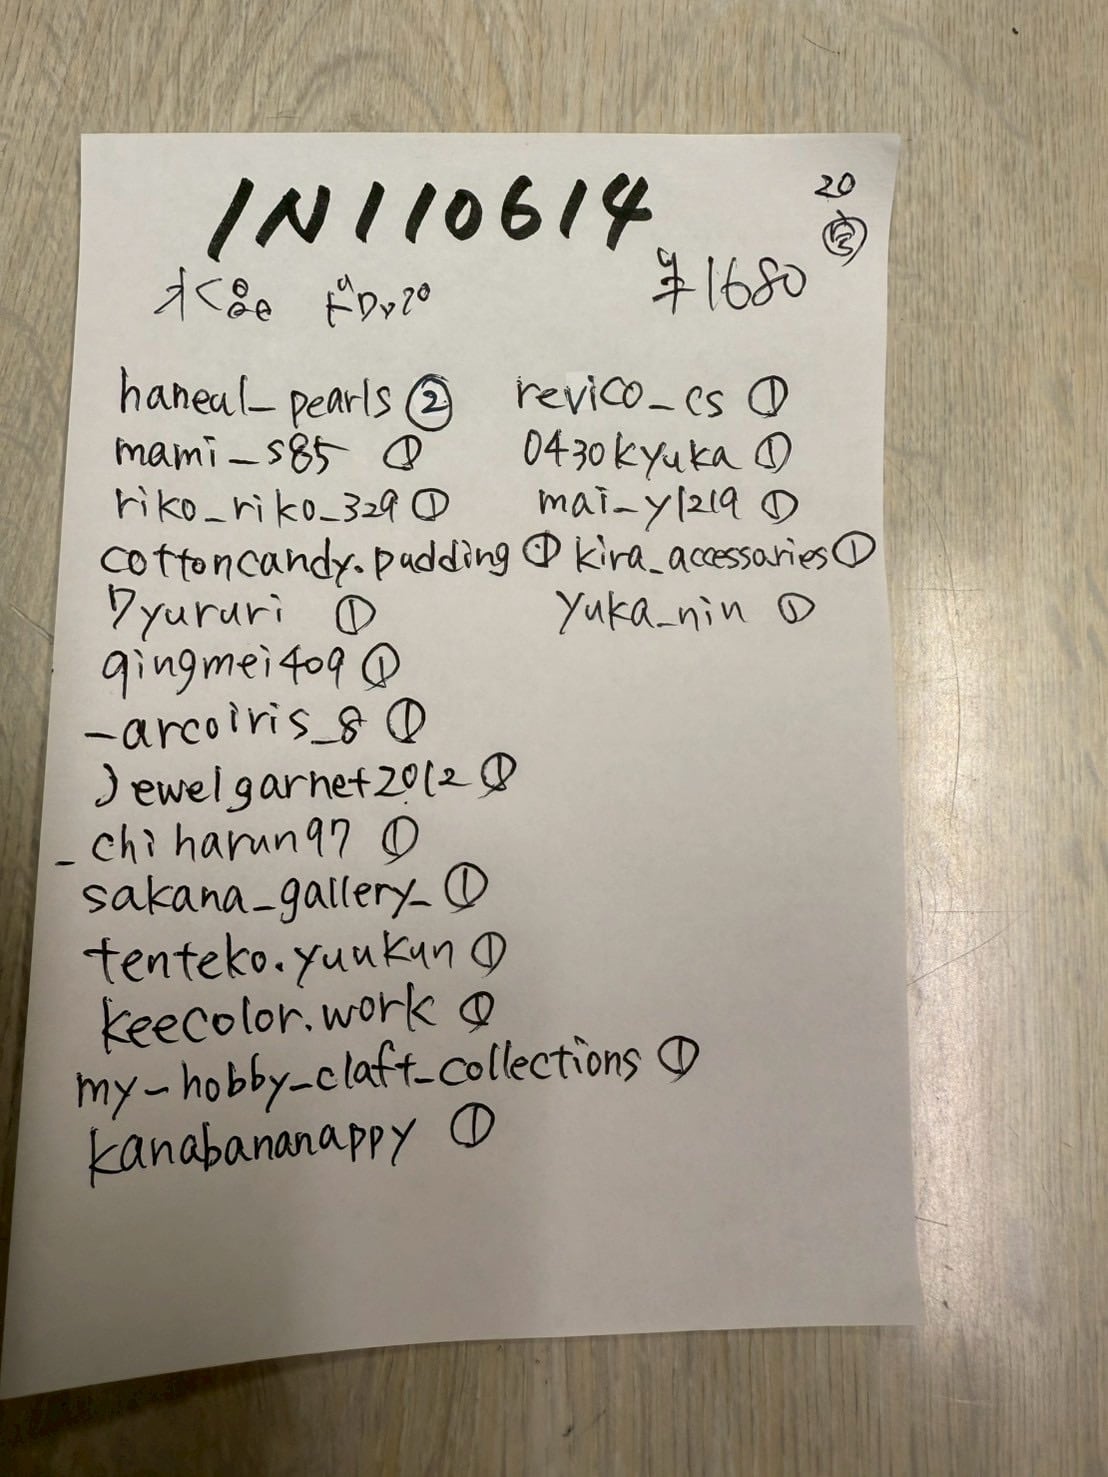 IN110614
20
水晶
¥1680
haneul_pearls ②
mami_s85 ①
riko_riko_329 ①
cottoncandy.pudding ①
7yururi ①
qingmei409 ①
_arcoiris_8 ①
Jewelgarnet2012 ①
_chiharun97 ①
sakana_gallery_ ①
tenteko.yuukun ①
keecolor.work ①
my_hobby_claft_collections ①
kanabananappy ①
revico_cs ①
0430kyuka ①
mai_y1219 ①
kira_accessaries ①
yuka_nin ①